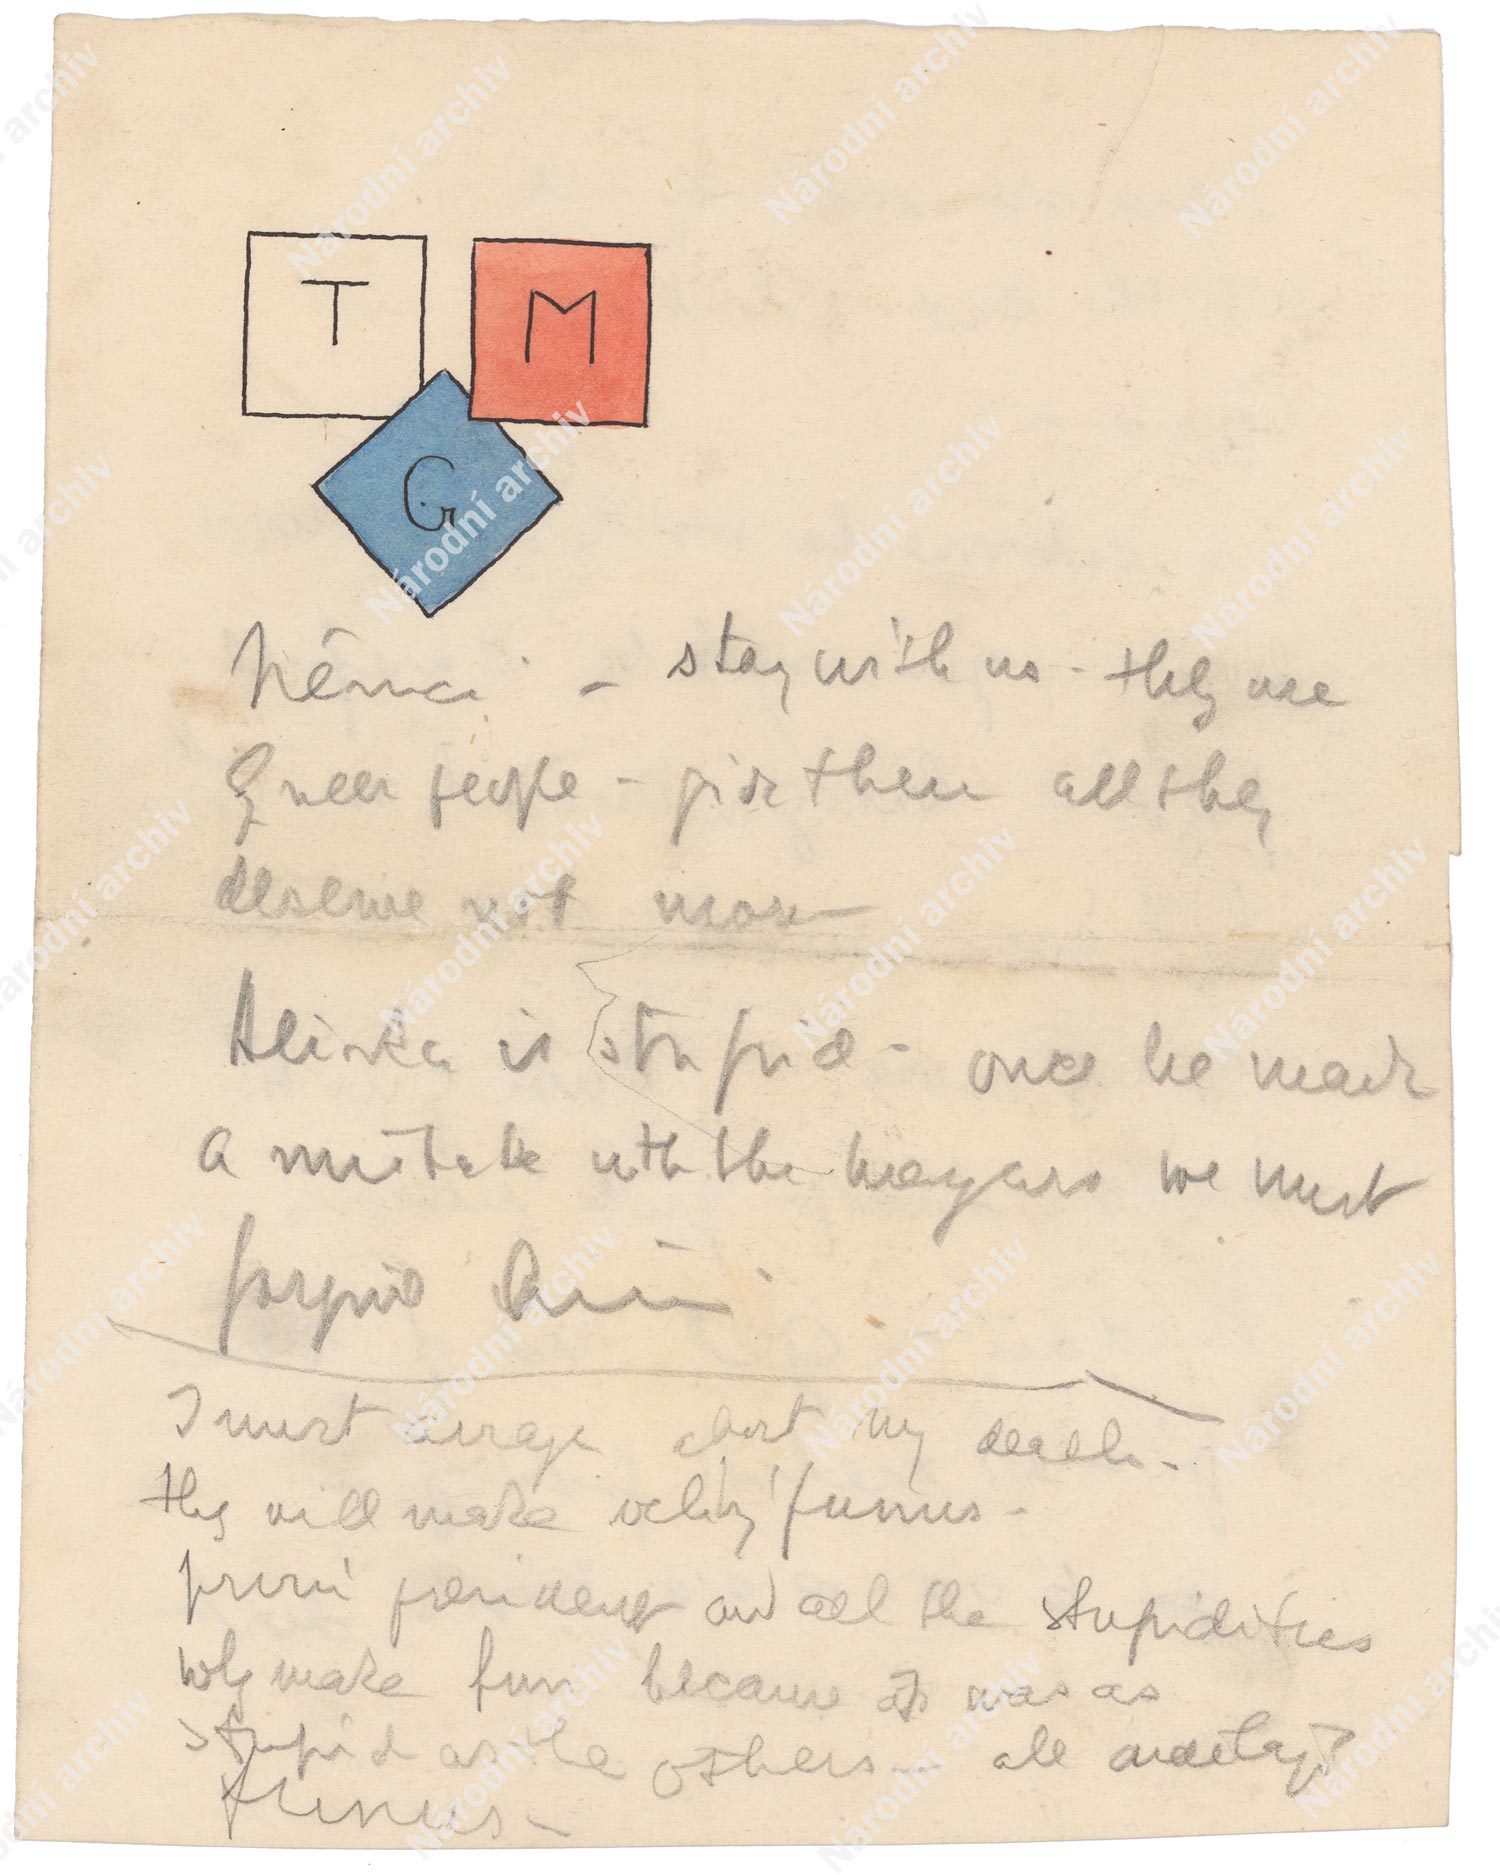 T M
G
Němci - stay with us - they are
queer people - give them all they
deserve not more
Hlinka is stupid - once he made
a mistake with the magyars we must
forgive
I must arrange about my death -
they will make veliký funus -
první president and all the stupidities
why make fun because it was as
stupid as the others - all
funus -
Národní archiv